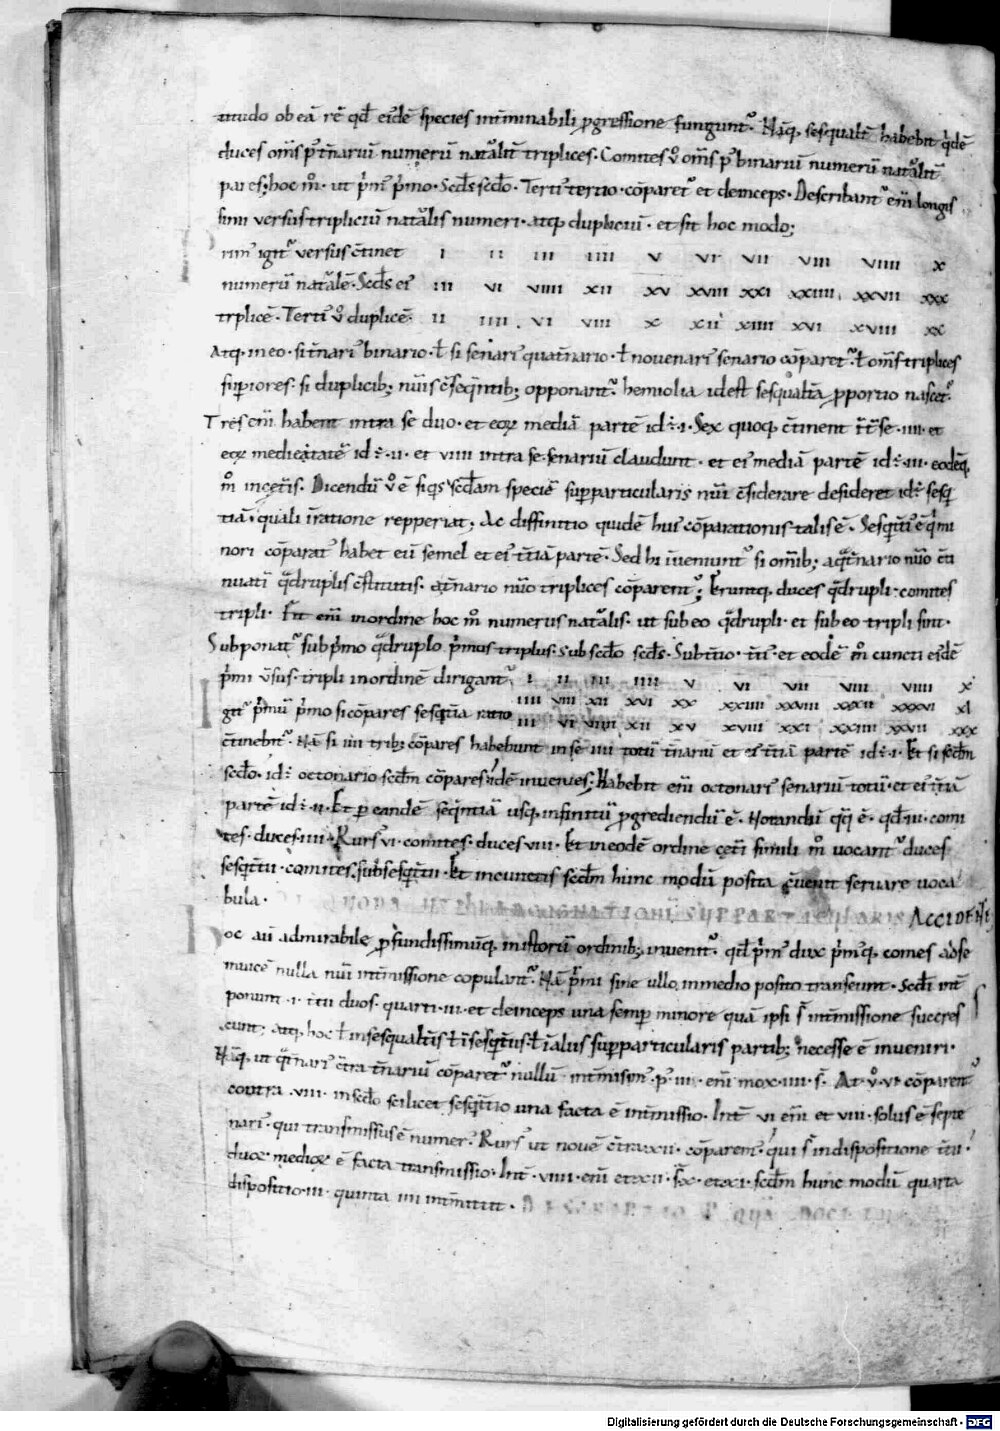 titudo ob eā rē qđ eidē species int̄minabili p̱gressione fungunt᷑. Nāq; sesqualt̄ habebit q̇dē
duces om̄s p᷑ t̄nariū numerū natālit̄ triplices. Comites v̊ om̄s p᷑ binariū numerū natālit̄
pares; hoc m̊. ut p̄m᷒ p̄mo. Scđs scđo. Terti᷒ tertio. cōparet᷑ et deinceps. Describant᷑ eni longis
simi versus tripliciū natālis numeri. atq; dupliciū. et sit hoc modo;
rim᷒ igit᷑ versus c̄tinet I II III IIII V VI VII VIII VIIII X
numerū natālē. Scđs ei᷒ III VI VIIII XII XV XVIII XXI XXIIII XXVII XXX
triplicē. Terti᷒ v̊ duplicē. II IIII VI VIII X XII XIIII XVI XVIII XX
Atq; in eo. si t̄nari᷒ binario. ł si senari᷒ quat̄nario. ł novenari᷒ senario cōparet᷑. ł om̄s triplices
sup̱iores. si duplicib; nūis c̄seq̄ntib; opponant᷑. hemiolia id est sesqualt̄a p̱portio nascet᷑.
Tres eni habent intra se duo. et eoꝝ mediā partē id.ē. I. Sex quoq; c̄tinent īt̄ se. IIII. et
eoꝝ medietatē id.ē. II. et VIIII intra se senariū claudunt. et ei᷒ mediā partē id.ē. III. eodēq;
m̊ in cet̄is. Dicendū v̊ ē siq̇s scđam speciē sup̱particularis nūi c̄siderare desideret id.ē sesq
tiā. quali īratione repperiat; Ac diffinitio quidē hui᷒ cōparationis talis ē. Sesq̇t̄i᷒ ē q̇ mi
nori cōparat᷒ habet eū semel et ei᷒ t̄tiā partē. Sed hi īveniunt᷑ si om̄ib; a q̇t̄nario nūo c̄ti
nuatī q̇druplis c̄stitutis. a t̄nario nūo triplices cōparent᷑; Eruntq; duces q̇drupli. comites
tripli. Fit eni in ordine hoc m̊ numerus natālis. ut sub eo q̇drupli. et sub eo tripli sint.
Subponat᷑ sub p̄mo q̇druplo p̄mus triplus. Sub scđo scđs. Sub t̄tio. t̄ti᷒. et eodē m̊ cuncti eidē
p̄mi v̄sus. tripli in ordinē dirigant᷑. I II III IIII V VI VII VIII VIIII X
IIII VIII XII XVI XX XXIIII XXVIII XXXII XXXVI XL
git᷑ p̄mū p̄mo si cōpares sesq̇t̄a ratio III VI VIIII XII XV XVIII XXI XXIIII XXVII XXX
c̄tinebit᷑. Nā si IIII trib; cōpares habebunt in se IIII totū t̄nariū et ei᷒ t̄tiā partē id.ē. I. Et si scđm
scđo. id.ē octonario scđm cōpares idē invenies; Habebit eni octonari᷒ senariū totū. et ei᷒ t̄tiā
partē id.ē. II. Et p̱ eandē seq̄ntiā usq; infinitū p̱grediendū ē. Notandū q̇q; ē. qđ. III. comi
tes. duces. IIII. Rurs᷒ VI. comites. duces VIII. Et in eodē ordine cet̄i simili m̊ vocant᷑ duces
sesq̇t̄ii. comites. subsesq̇t̄ii. Et in cunctis scđm hunc modū posita c̄venit servare voca
bula. ACCIDENS
oc au admirabile p̱fundissimūq; in istorū ordinib; invenit᷑. qđ p̄m᷒ dux p̄m᷒q; comes ad se
invicē nulla nūi int̄missione copulant᷑. Nā p̄mi sine ullo in medio posito transeunt. Scđi int̄
ponunt. I. t̄tii duos. quarti. III. et deinceps una semp̱ minore quā ipsi s̄ int̄missione succres
cunt; atq; hoc ł in sesqualt̄is ł ī sesq̇t̄iis. ł ī aliis sup̱particularis partib; necesse ē inveniri.
Nāq; ut q̇t̄nari᷒ c̄tra t̄nariū cōparet᷑ nullū int̄misim᷒. p᷑ III. eni mox. IIII. s̄. At v̊ VI cōparent᷑
contra. VIII. in scđo scilicet sesq̇t̄tio una facta ē int̄missio. Int̄ VI eni et VIII. solus ē septe
nari᷒. qui transmissus ē numer᷒. Rurs᷒ ut novē c̄tra XII. cōparem᷒. qui s̄ in dispositione t̄tii.
duoꝝ medioꝝ ē facta transmissio. Int̄. VIIII. eni et XII. s̄ X. et XI. scđm hunc modū quarta
dispositio. III. quinta IIII int̄mittit.